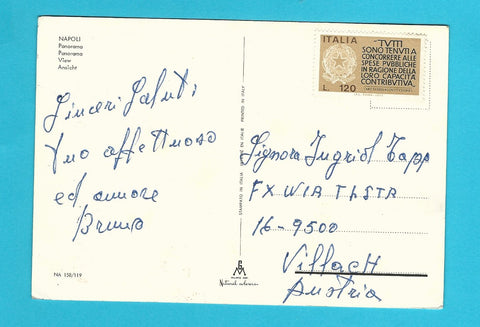 NAPOLI
Panorama
Panorama
View
Ansicht
Sinceri Saluti
Tuo affettuoso
ed amore
Bruno
NA 158/119
STAMPATO IN ITALIA
PRINTED IN ITALY
ITALIA
TUTTI
SONO TENUTI A
CONCORRERE ALLE
SPESE PUBBLICHE
IN RAGIONE DELLA
LORO CAPACITÀ
CONTRIBUTIVA.
L. 120
Signora Ingrid Tapp
FX WIA
16-9500
Villach
Austria